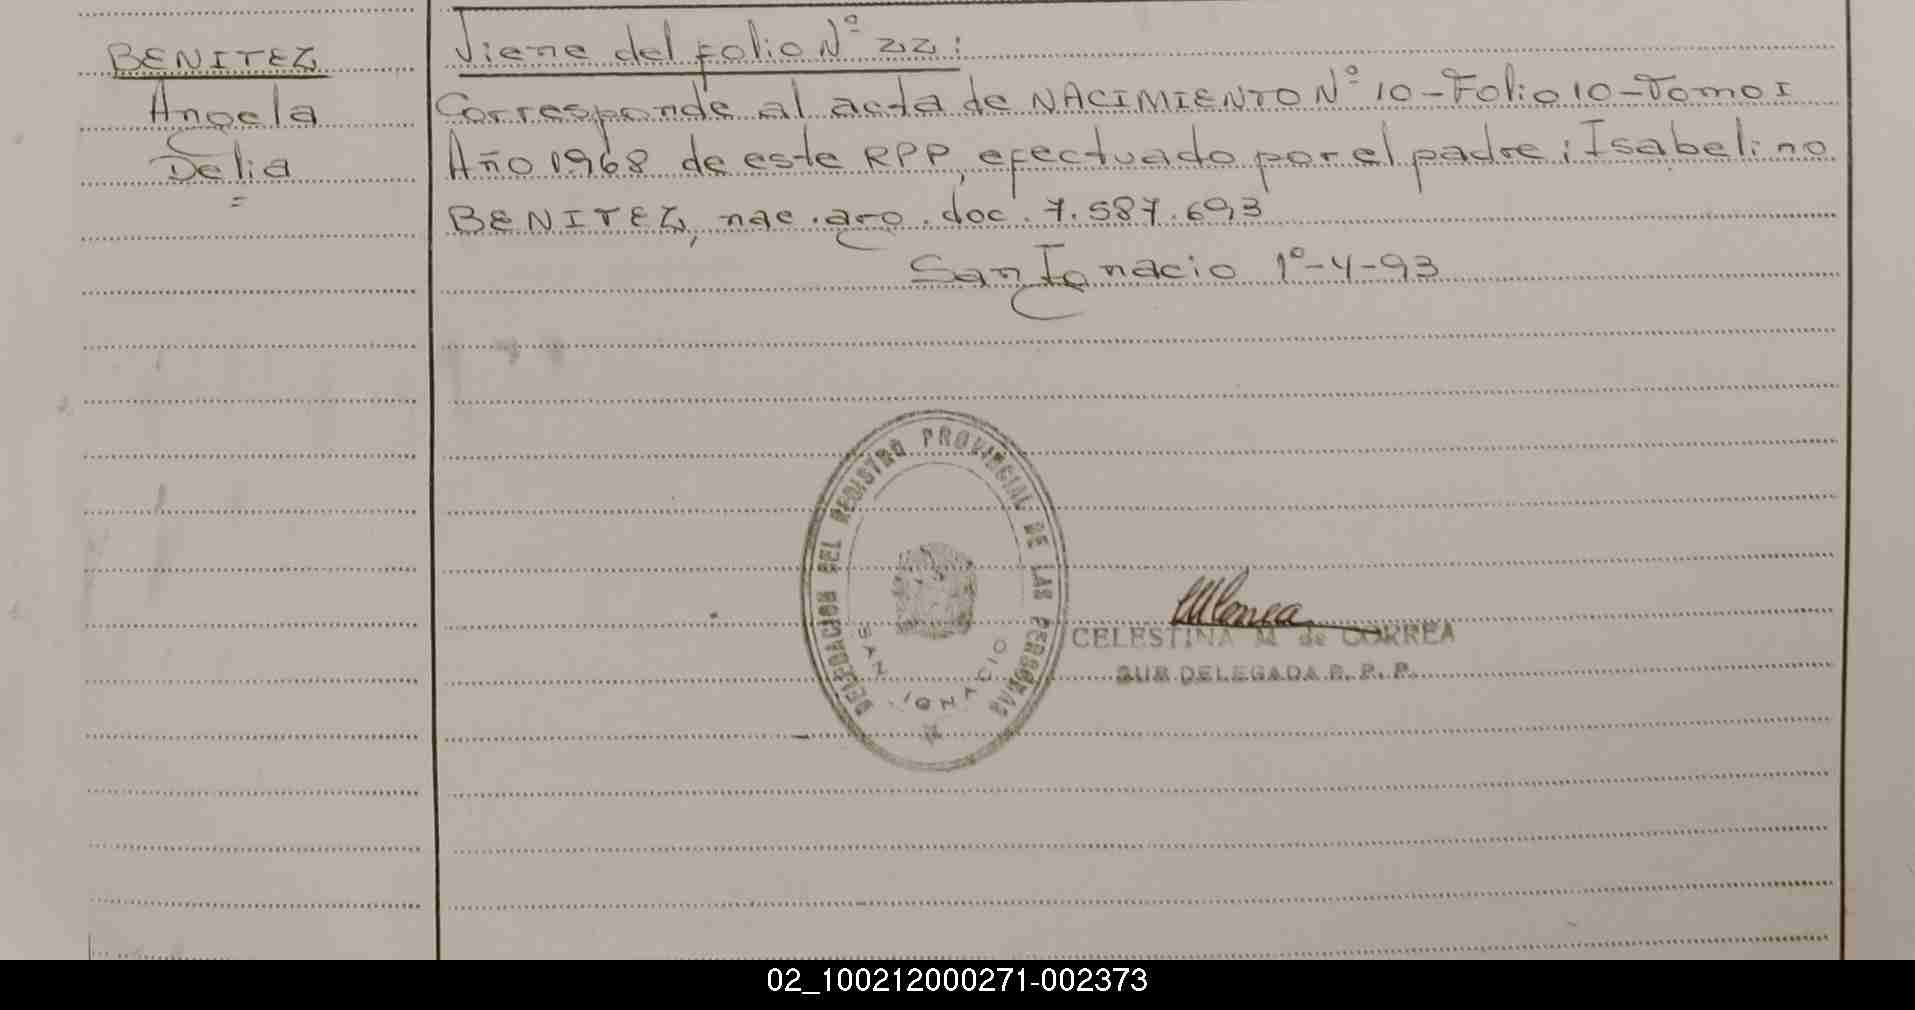 BENITEZ
Angela
Delia
=
Viene del folio Nº 22:
Corresponde al acta de NACIMIENTO Nº 10-Folio 10-Tomo I
Año 1968 de este RPP, efectuado por el padre: Isabelino
BENITEZ, nac. arg. doc. 7.587.693
San Ignacio 1º-4-93
DELEGACION DEL REGISTRO PROVINCIAL DE LAS PERSONAS
SAN IGNACIO
CELESTINA M de CORREA
SUB DELEGADA R. P. P.
02_100212000271-002373